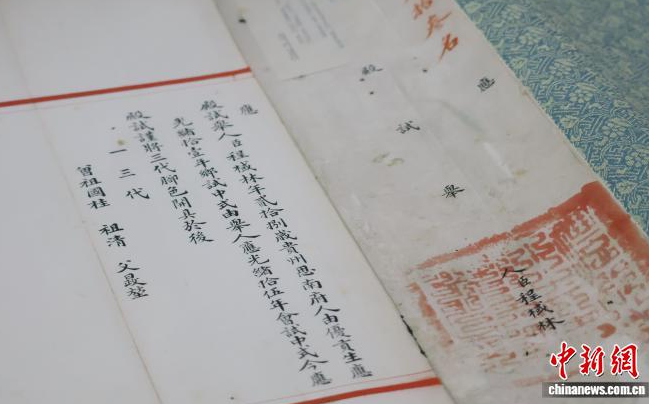 拾叁名
應
殿試舉
人臣程棫林
應
殿試舉人臣程棫林年貳拾捌歲貴州思南府人由優貢生應
光緒拾壹年鄉試中式由舉人應光緒拾伍年會試中式今應
殿試謹將三代腳色開具於後
一三代
曾祖國桂 祖清 父最堃
中新网
www.chinanews.com